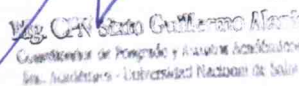 Mg. CPN Sixto Guillermo Alan
Coordinador de Posgrado y Asuntos Académicos
Académicos - Universidad Nacional de Salta